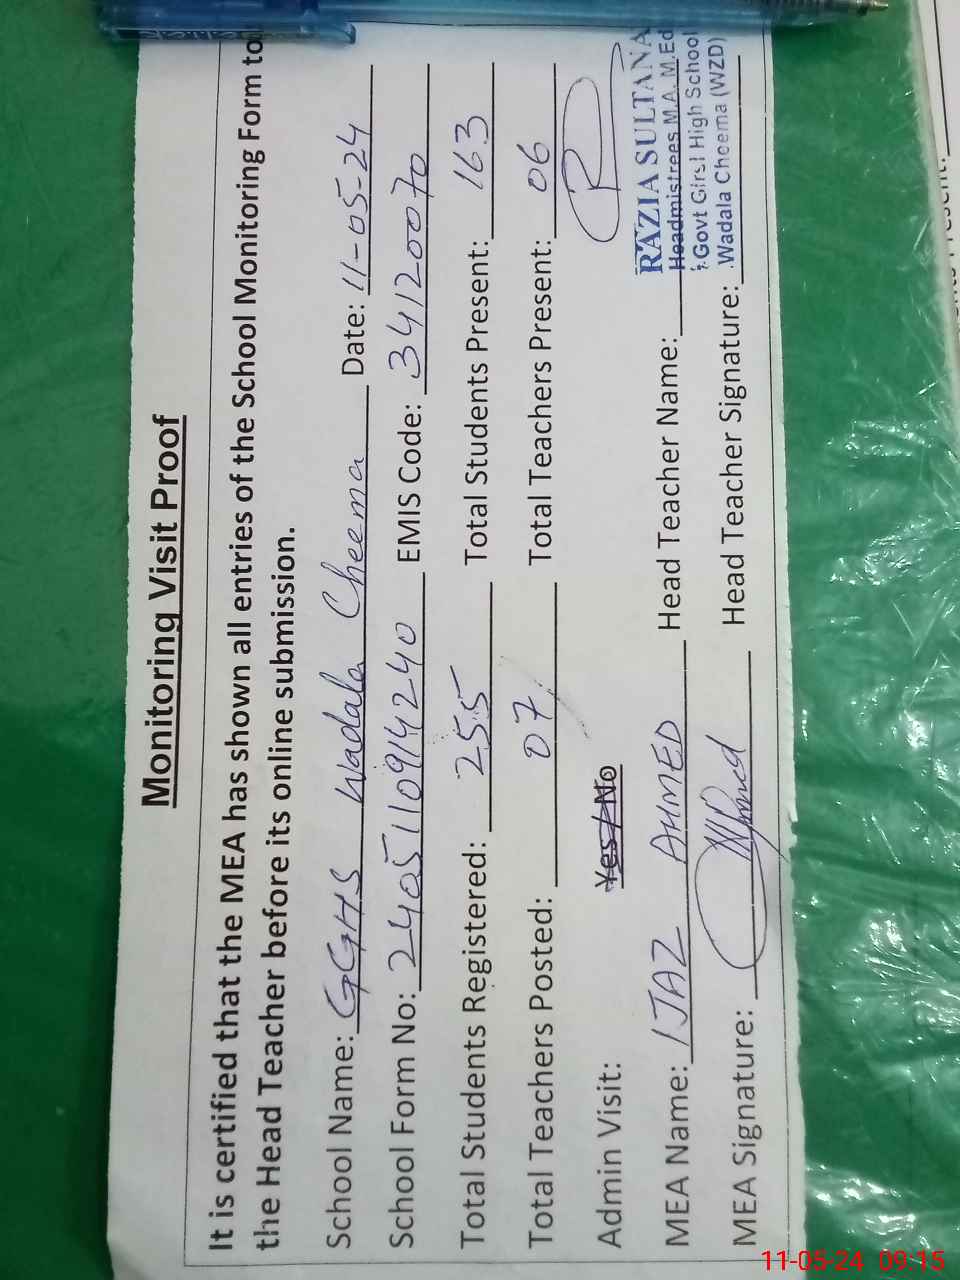 Monitoring Visit Proof
It is certified that the MEA has shown all entries of the School Monitoring Form to
the Head Teacher before its online submission.
School Name: GGHS Wadala Cheema Date: 11-05-24
School Form No: 2405110914240 EMIS Code: 34120070
Total Students Registered: 255 Total Students Present: 163
Total Teachers Posted: 07 Total Teachers Present: 06
Admin Visit: Yes / No
MEA Name: IJAZ AHMED Head Teacher Name:
MEA Signature: Head Teacher Signature:
RAZIA SULTANA
Headmistrees M.A, M.Ed
Govt Girsl High School
Wadala Cheema (WZD)
11-05-24 09:15